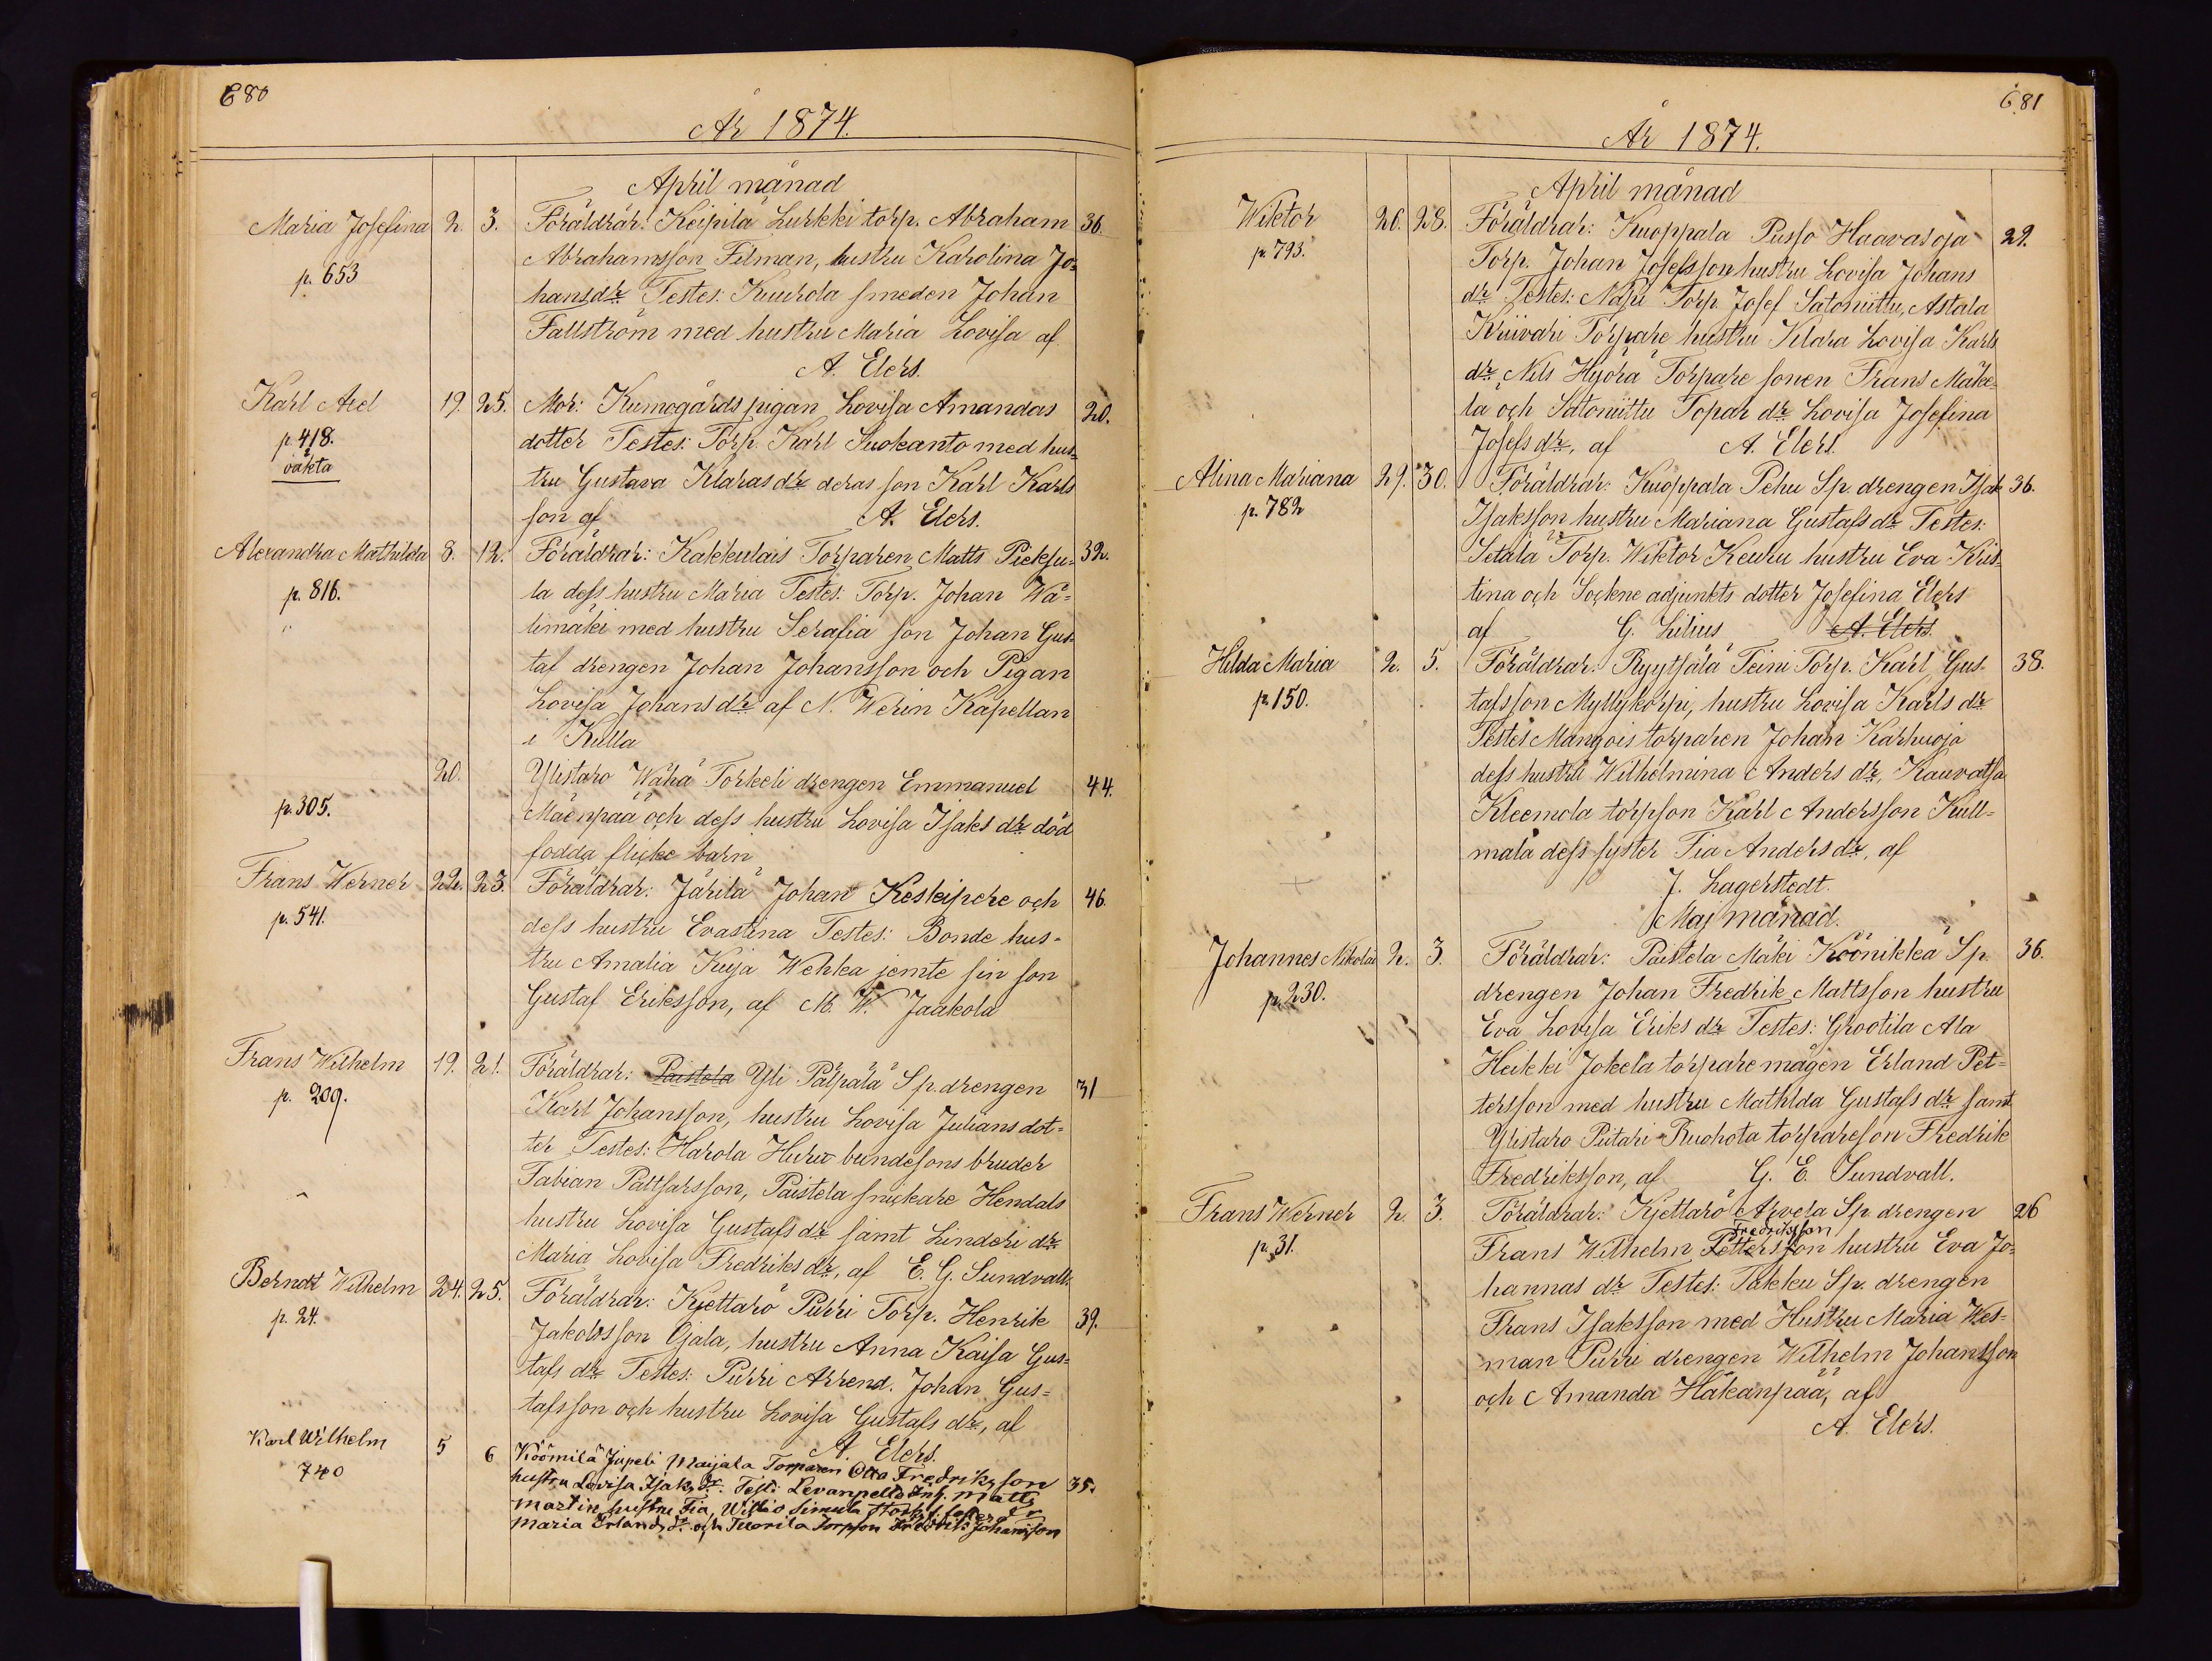 680
År 1874.
April månad
Maria Josefina 2. 3. Föräldrar: Keipilä Lurkki torp. Abraham 36.
Abrahamsson Filman, hustru Karolina Jo=
p. 653 hansdr Testes: Kuurola smeden Johan
Fallström med hustru Maria Lovisa af
A. Elers.
Karl Axel 19. 25. Mor: Kumogårds pigan Lovisa Amandas 20.
p. 418. dotter Testes: Torp. Karl Suokanto med hus=
oäkta tru Gustava Klaras dr deras son Karl Karls
son af A. Elers.
Alexandra Mathilda 8. 12. Föräldrar: Kakkulais Torparen Matts Pieksu= 32.
p. 816. la dess hustru Maria Testes: Torp. Johan Wä=
limäki med hustru Serafia son Johan Gus
taf drengen Johan Johansson och Pigan
Lovisa Johans dr af N. Werin Kapellan
i Kulla
20. Ylistaro Wähä Torkeli drengen Emmanuel 44.
p. 305. Mäenpää och dess hustru Lovisa Isaks dr död
födda flicke barn
Frans Werner 22. 23. Föräldrar: Järilä Johan Keskipere och 46.
p. 541. dess hustru Evastina Testes: Bonde hus-
tru Amalia Kuja Wehka jemte sin son
Gustaf Eriksson, af M. W. Jaakola
Frans Wilhelm 19. 21. Föräldrar: Paistela Yli Pälpälä Sp. drengen 31
p. 209. Karl Johansson, hustru Lovisa Julians dot=
ter Testes: Harola Huru bondesons bruder
Fabian Pältsarsson, Paistela snickare Hendals
hustru Lovisa Gustafs dr samt Linderi dr
Maria Lovisa Fredriks dr, af E. G. Sundvall.
Berndt Wilhelm 24. 25. Föräldrar: Kjettarö Purri Torp. Henrik 39.
p. 24. Jakobsson Ojala, hustru Anna Kaisa Gus=
tafs dr Testes: Purri Arrend. Johan Gus=
tafsson och hustru Lovisa Gustafs dr, af
A. Elers.
Karl Wilhelm 5 6 Köömilä Jupeli Maijala Torparen Otto Fredriksson
740 hustru Lovisa Isaks dr. Test: Levanpelto Matts 35.
Martin hustru Fia, Simula
Maria Erlands dr och Tuorila Torpson Fredrik Johansson
681
År 1874.
April månad
Wiktor 26. 28. Föräldrar: Kuoppala Pusso Haavasoja 29.
p. 793. Torp. Johan Josefsson hustru Lovisa Johans
dr Testes: Näsi Torp. Josef Satoniittu, Astala
Kriivari Torpare hustru Klara Lovisa Karls
dr, Nils Hyörä Torpare sonen Frans Mäke=
lä och Satoniittu Topar dr Lovisa Josefina
Josefs dr, af A. Elers.
Alina Mariana 29. 30. Föräldrar: Kuoppala Pehu Sp. drengen Isak 36.
p. 782 Isaksson hustru Mariana Gustafs dr Testes:
Setälä Torp. Wiktor Keuru hustru Eva Kris=
tina och Sockne adjunkts dotter Josefina Elers
af G. Lilius A. Elers.
Hilda Maria 2. 5. Föräldrar: Ryytsälä Teini Torp. Karl Gus- 38.
p. 150. tafsson Myllykorpi, hustru Lovisa Karls dr
Testes Mangois torparen Johan Karhuoja
dess hustru Wilhelmina Anders dr, Kauvatsa
Kleemola torpson Karl Andersson Kull=
mala dess syster Fia Anders dr, af
J. Lagerstedt.
Maj månad.
Johannes Nikolai 2. 3. Föräldrar: Paistela Mäki Köönikkä Sp. 36.
p. 230. drengen Johan Fredrik Mattsson hustru
Eva Lovisa Eriks dr Testes: Grootila Ala
Heikki Jokela torpare mågen Erland Pet-
tersson med hustru Mathilda Gustafs dr samt
Ylistaro Piitari Ruohota torpareson Fredrik
Fredriksson, af G. E. Sundvall.
Frans Werner 2. 3. Föräldrar: Kjettarö Arvela Sp. drengen 26
Fredriksson
p. 31. Frans Wilhelm Pettersson hustru Eva Jo=
hannas dr Testes: Takku Sp. drengen
Frans Isaksson med Hustru Maria Wes=
man Purri drengen Wilhelm Johansson
och Amanda Häkänpää, af
A. Elers.